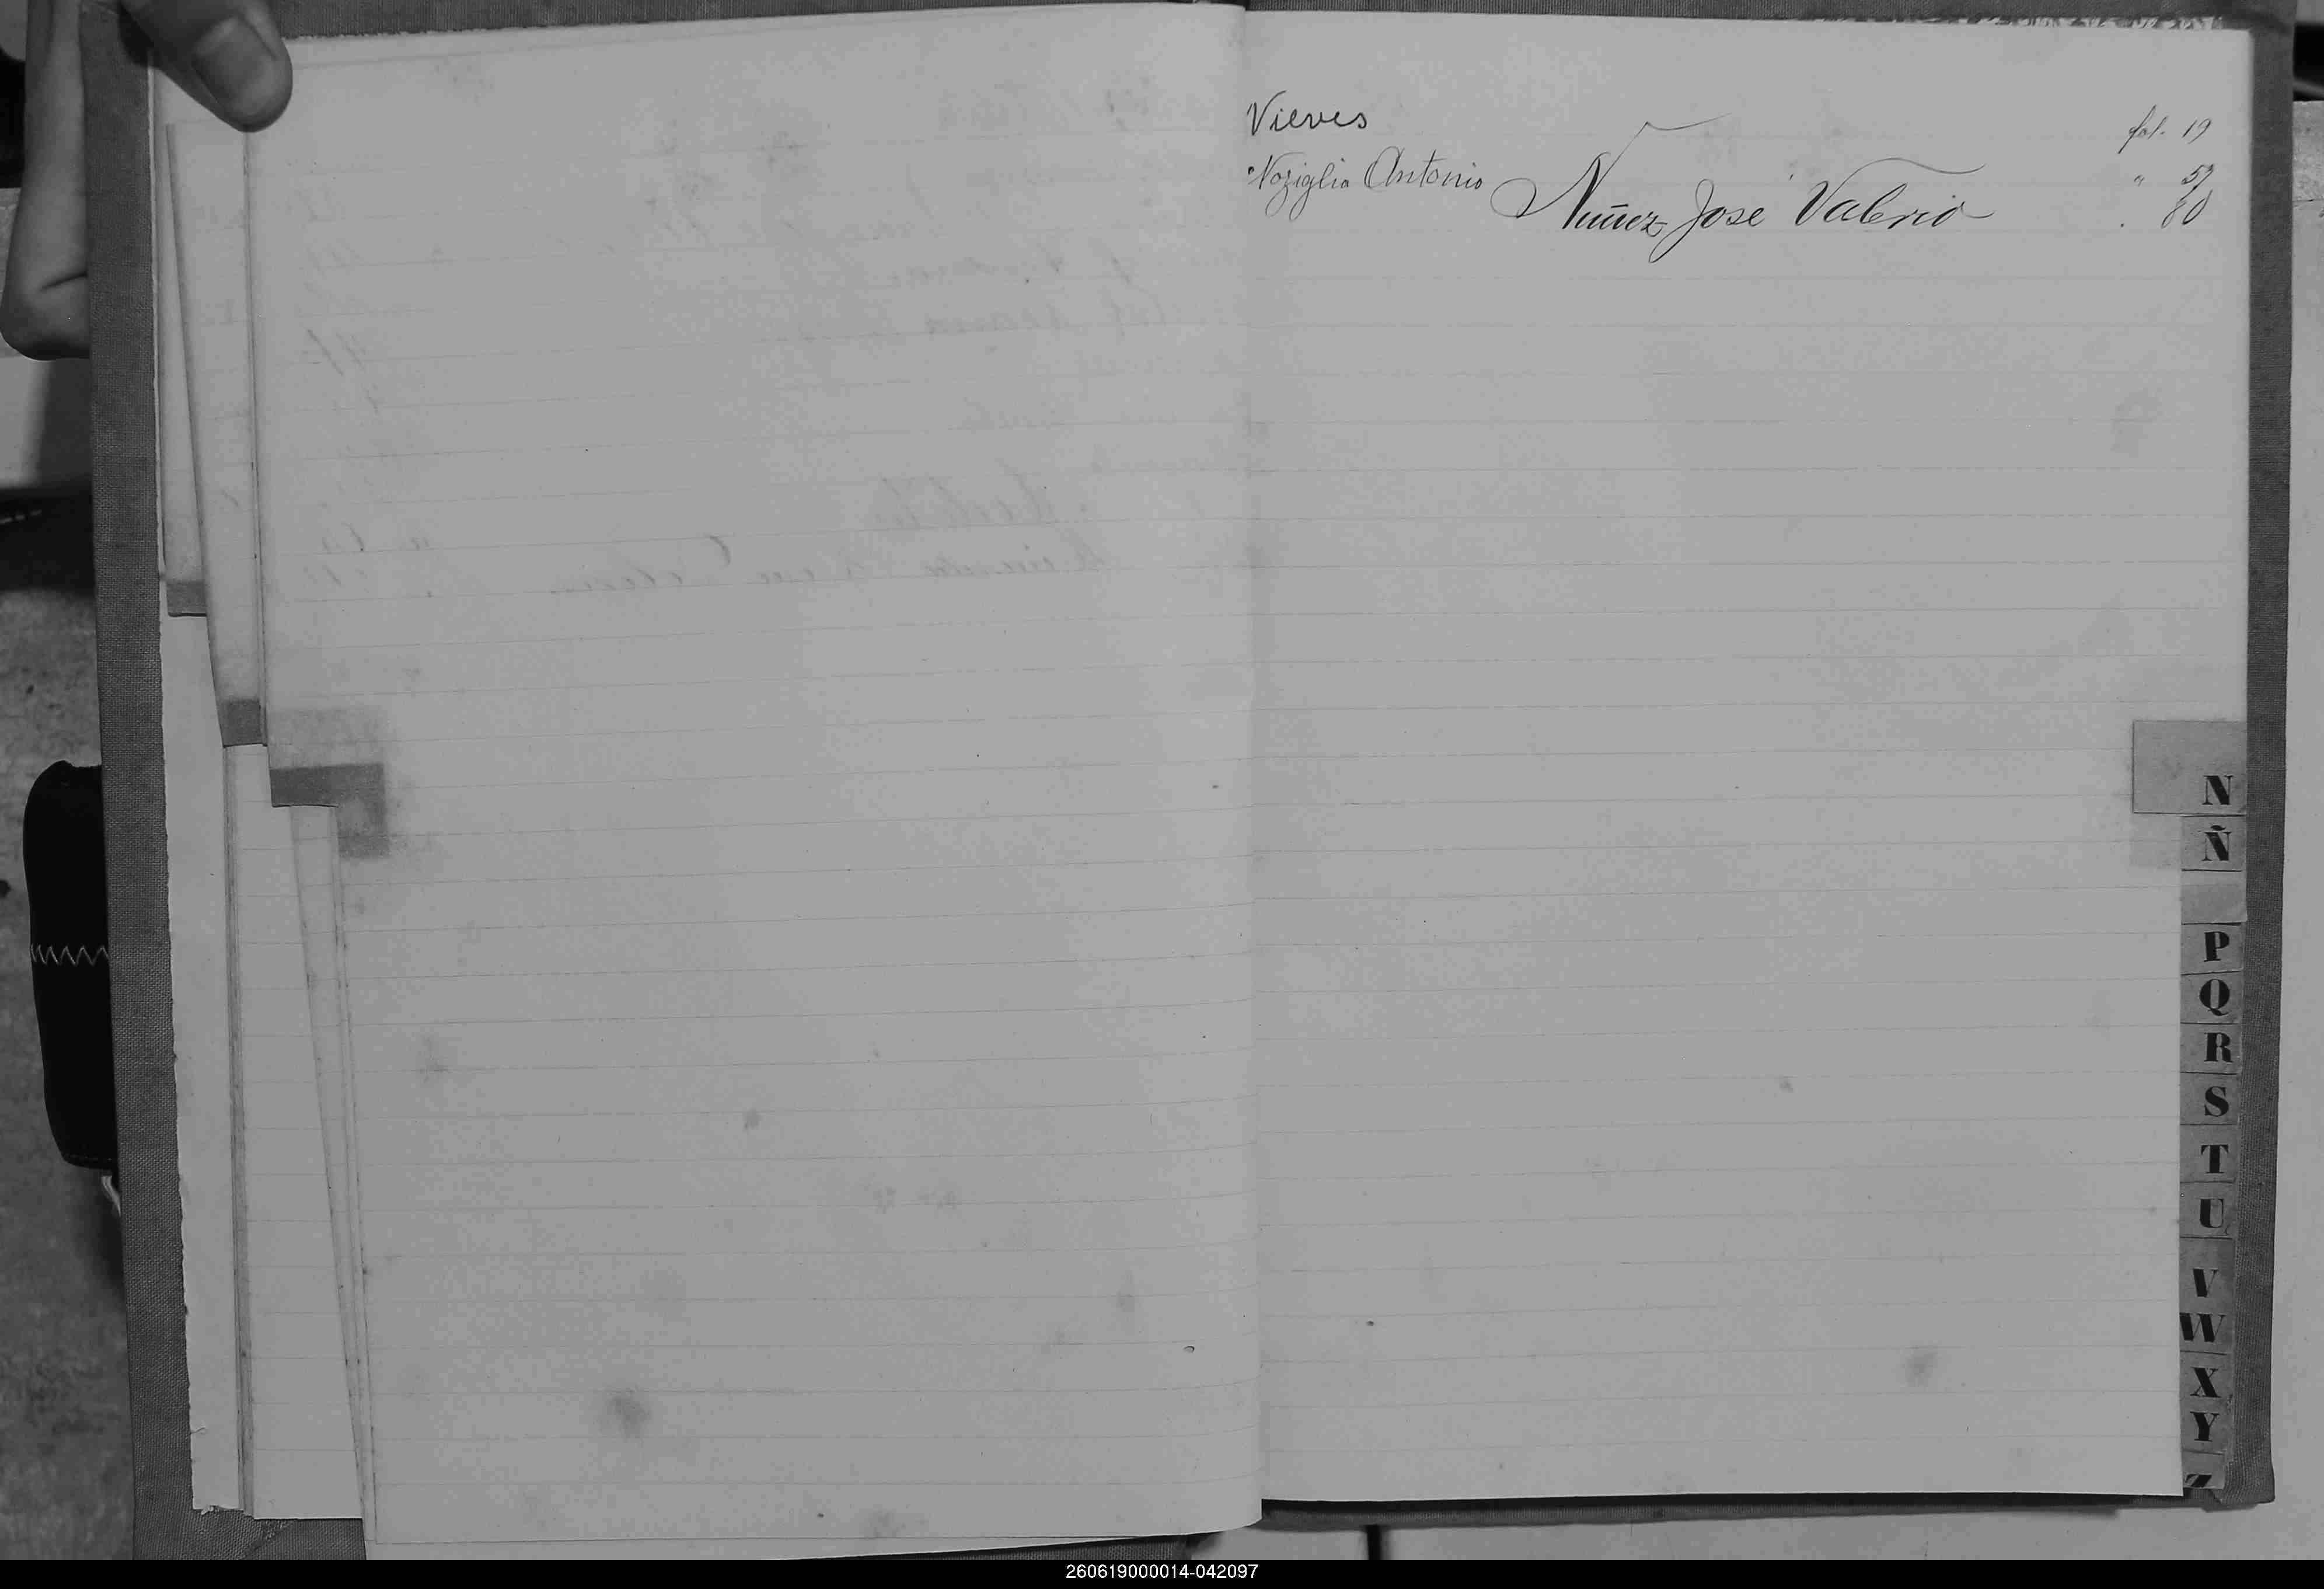 Nieves fol. 19
Noziglia Antonio " 57
Nuñez José Valerio . 80
N
Ñ
P
Q
R
S
T
U
V
W
X
Y
Z
260619000014-042097